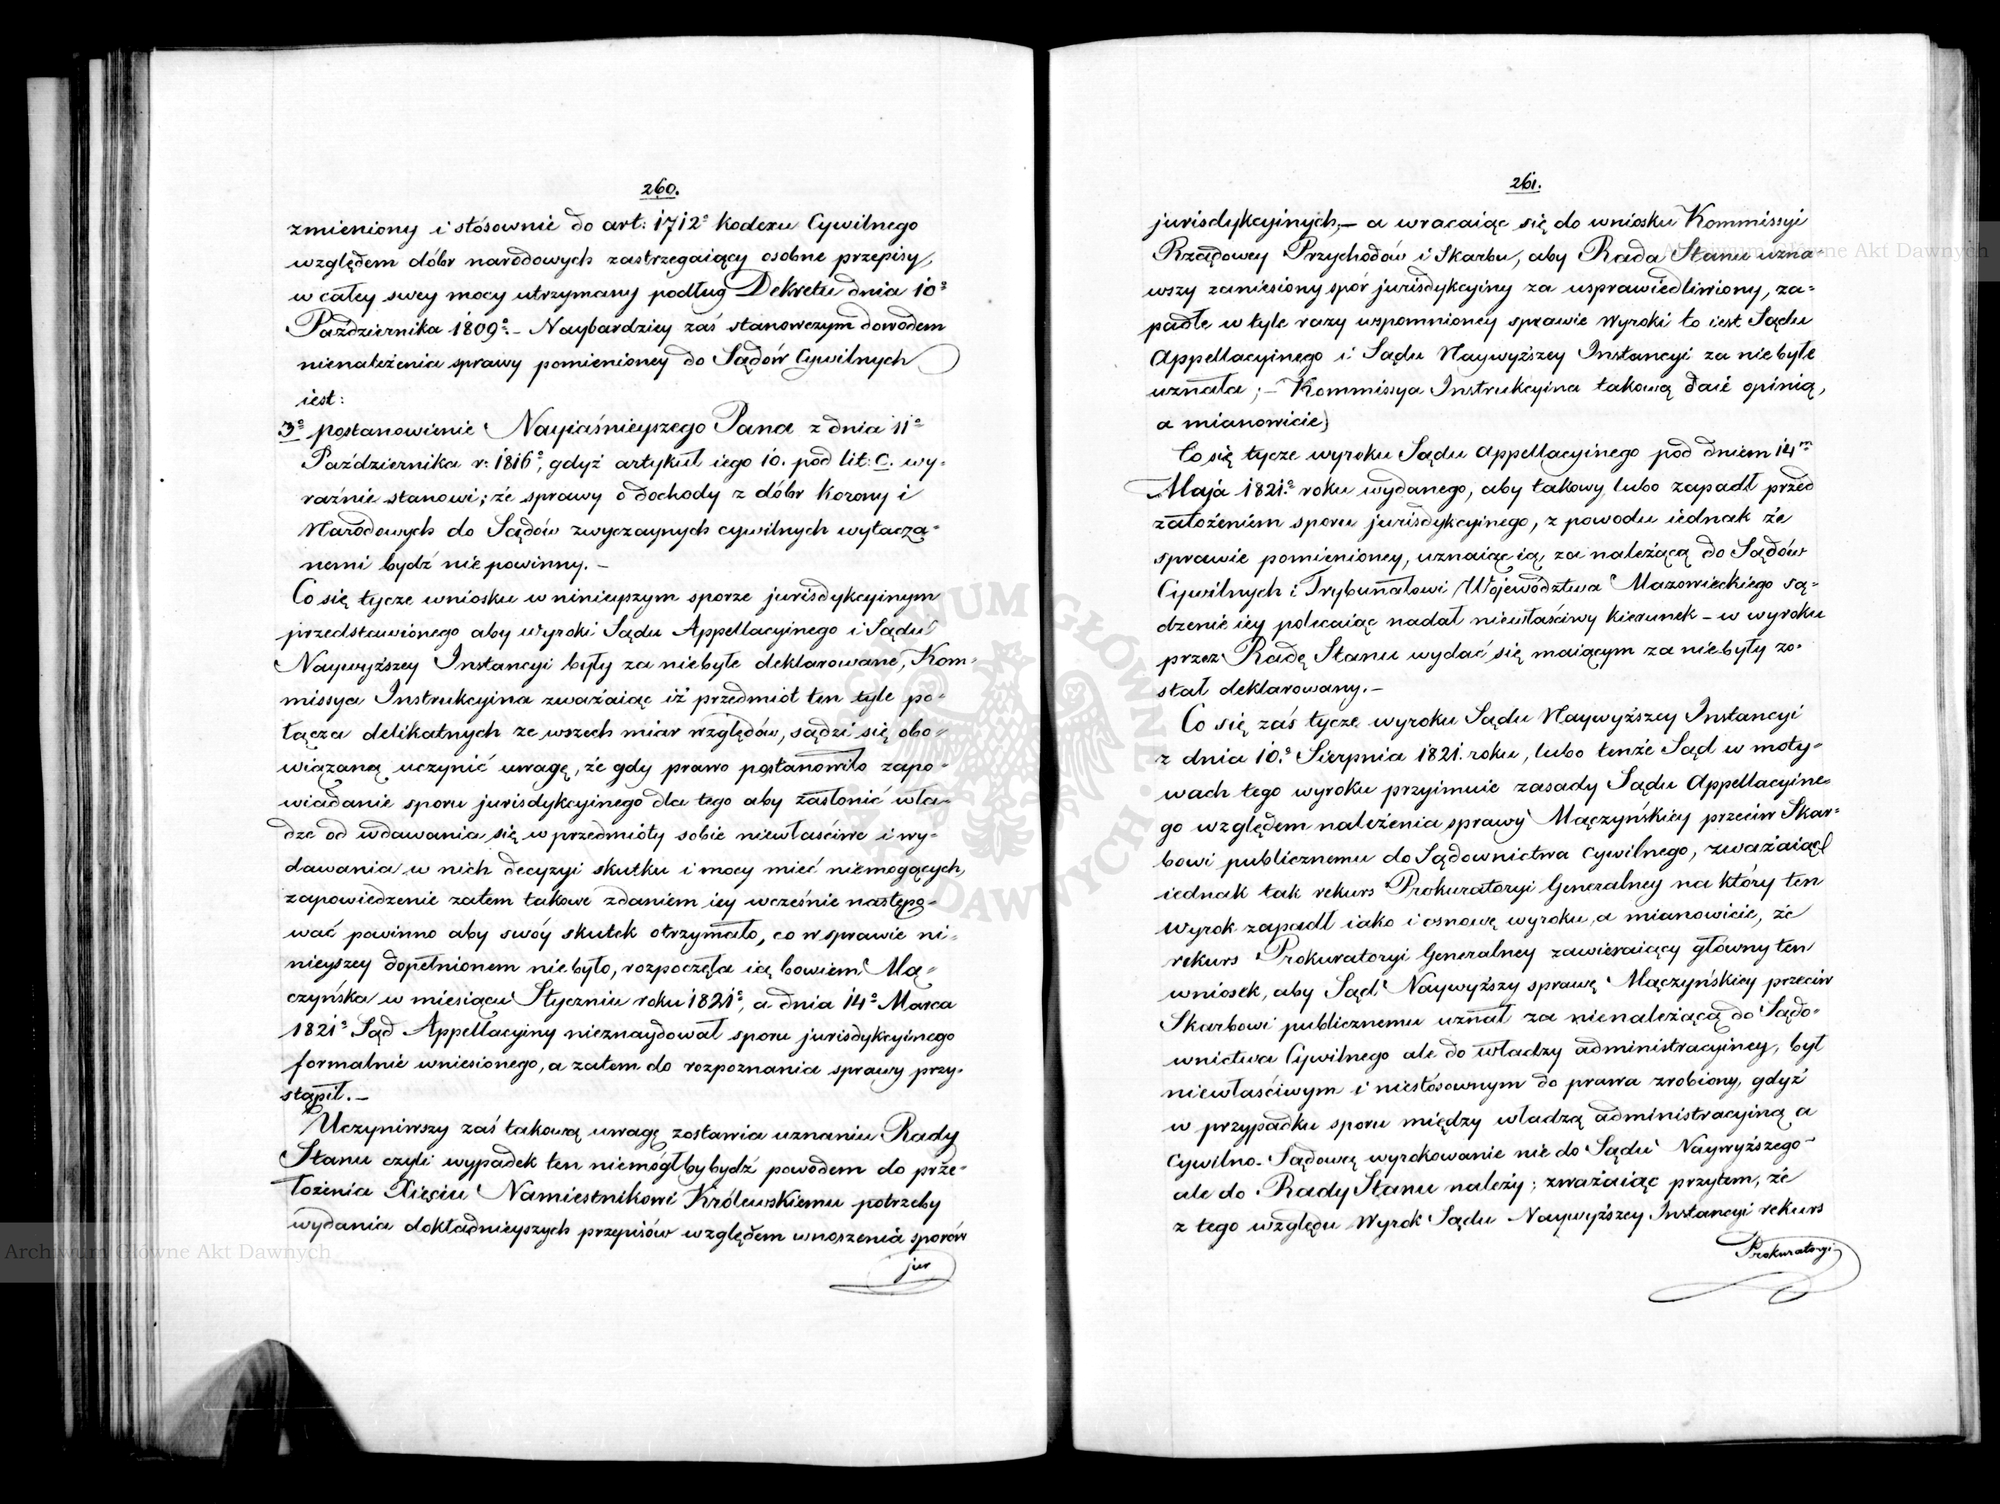 260.
zmieniony i stósownie do art: 1712º Kodexu Cywilnego
względem dóbr narodowych zastrzegaiący osobne przepisy,
w całey swey mocy utrzymany podług Dekretu dnia 10º
Października 1809º. – Naybardziey zaś stanowczym dowodem
nienależenia sprawy pomienioney do Sądów Cywilnych
iest:
3º postanowienie Nayiaśnieyszego Pana z dnia 11º
Października r: 1816º, gdyż artykuł iego 10. pod lit: C. wy-
raźnie stanowi; że sprawy o dochody z dóbr Korony i
Narodowych do Sądów zwyczaynych cywilnych wytacza-
nemi bydź nie powinny. –
Co się tycze wniosku w ninieyszym sporze jurisdykcyinym
przedstawionego aby wyroki Sądu Appellacyinego i Sądu
Naywyższey Instancyi były za niebyłe deklarowane, Kom-
missya Instrukcyina zważaiąc iż przedmiot ten tyle po-
łącza delikatnych ze wszech miar względów, sądzi się obo-
wiązaną uczynić uwagę, że gdy prawo postanowiło zapo-
wiadanie sporu jurisdykcyinego dla tego aby zasłonić wła-
dze od wdawania się w przedmioty sobie niewłaściwe i wy-
dawania w nich decyzyi skutku i mocy mieć niemogących,
zapowiedzenie zatem takowe zdaniem iey wcześnie następo-
wać powinno aby swóy skutek otrzymało, co w sprawie ni-
nieyszey dopełnionem nie było, rozpoczęła ią bowiem Mą-
czyńska w miesiącu Styczniu roku 1821º, a dnia 14º Marca
1821º Sąd Appellacyiny nieznaydował sporu jurisdykcyinego
formalnie wniesionego, a zatem do rozpoznania sprawy przy-
stąpił. –
Uczyniwszy zaś takową uwagę zostawia uznaniu Rady
Stanu czyli wypadek ten niemógłby bydź powodem do prze-
łożenia Xięciu Namiestnikowi Królewskiemu potrzeby
wydania dokładnieyszych przepisów względem wnoszenia sporów
jur
261.
jurisdykcyinych, – a wracaiąc się do wniosku Kommissyi
Rządowey Przychodów i Skarbu, aby Rada Stanu uzna-
wszy zaniesiony spór jurisdykcyiny za usprawiedliwiony, za-
padłe w tyle razy wspomnioney sprawie Wyroki to iest Sądu
Appellacyinego i Sądu Naywyższey Instancyi za niebyłe
uznała; – Kommissya Instrukcyina takową daie opinią,
a mianowicie)
Co się tycze wyroku Sądu Appellacyinego pod dniem 14m
Maja 1821.º roku wydanego, aby takowy lubo zapadł przed
założeniem sporu jurisdykcyinego, z powodu iednak że
sprawie pomienioney, uznaiąc ią za należącą do Sądów
Cywilnych i Trybunałowi Województwa Mazowieckiego są-
dzenie iey polecaiąc nadał niewłaściwy kierunek – w wyroku
przez Radę Stanu wydać się maiącym za niebyły zo-
stał deklarowany. –
Co się zaś tycze wyroku Sądu Naywyższey Instancyi
z dnia 10.º Sierpnia 1821. roku, lubo tenże Sąd w moty-
wach tego wyroku przyimuie zasady Sądu Appellacyine-
go względem należenia sprawy Mączyńskiey przeciw Skar-
bowi publicznemu do Sądownictwa Cywilnego, zważaiąc
iednak tak rekurs Prokuratoryi Generalney na który ten
wyrok zapadł iako i osnowę wyroku, a mianowicie, że
rekurs Prokuratoryi Generalney zawieraiący główny ten
wniosek, aby Sąd Naywyższy sprawę Mączyńskiey przeciw
Skarbowi publicznemu uznał za nienależącą do Sądo-
wnictwa Cywilnego ale do władzy administracyiney, był
niewłaściwym i niestósownym do prawa zrobiony, gdyż
w przypadku sporu między władzą administracyiną a
Cywilno-Sądową wyrokowanie nie do Sądu Naywyższego
ale do Rady Stanu należy; zważaiąc przytem, że
z tego względu Wyrok Sądu Naywyższey Instancyi rekurs
Prokuratoryi
Archiwum Główne Akt Dawnych
Archiwum Główne Akt Dawnych
ARCHIWUM GŁÓWNE AKT DAWNYCH